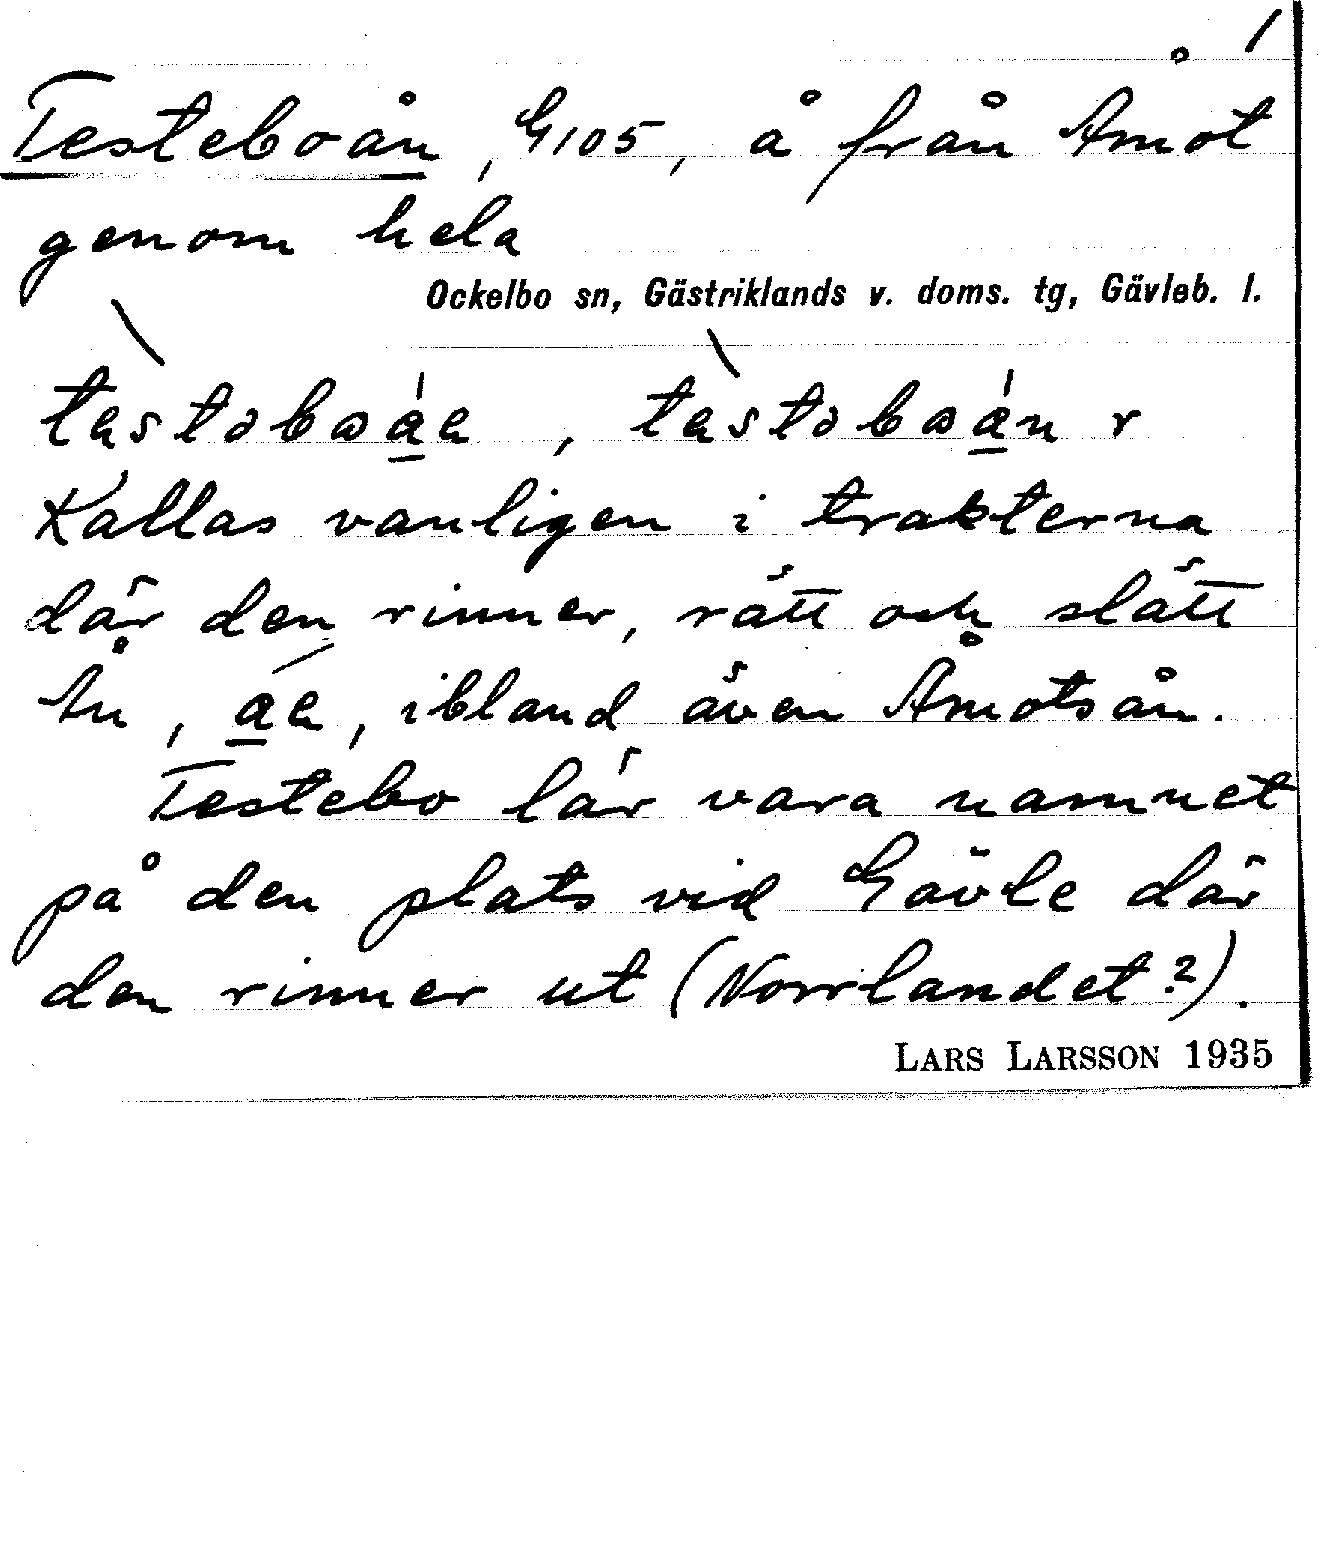 Testeboån, G105, å från Åmot
genom hela
Ockelbo sn, Gästriklands v. doms. tg, Gävleb. l.
Kallas vanligen i trakterna
där den rinner, rätt och slätt
Ån, , ibland även Åmotsån.
Testebo lär vara namnet
på den plats vid Gävle där
den rinner ut (Norrlandet?).
LARS LARSSON 1935